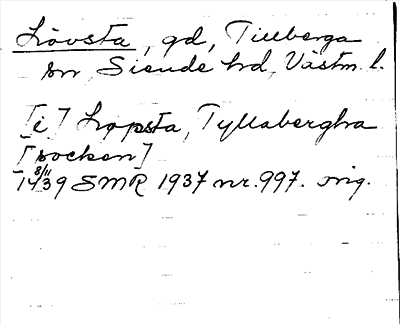 Lövsta, gd, Tillberga
sn, Siende hd, Västm. l.
[i] Lopsta, Tyllabergha
[socken]
1439 8/11 SMR 1937 nr. 997. orig.